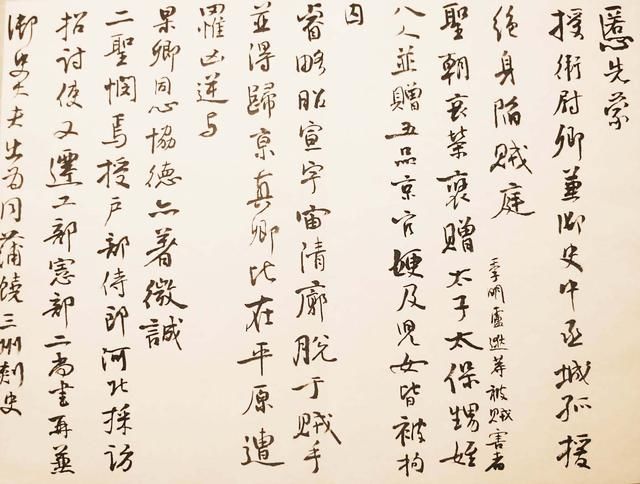 慝先蒙
授衛尉卿兼御史中丞城孤援
絕身陷賊庭
季明盧逖等被賊害者
聖朝哀榮褒贈太子太保甥姪
八人並贈五品京官嫂及兒女皆被拘
囚
睿略昭宣宇宙清廓脫于賊手
並得歸京真卿比在平原遭
罹凶逆与
杲卿同心協德亦著微誠
二聖憫焉授戶部侍郎河北採訪
招討使又遷工部憲部二尚書再兼
御史大夫出為同蒲饒三州刺史